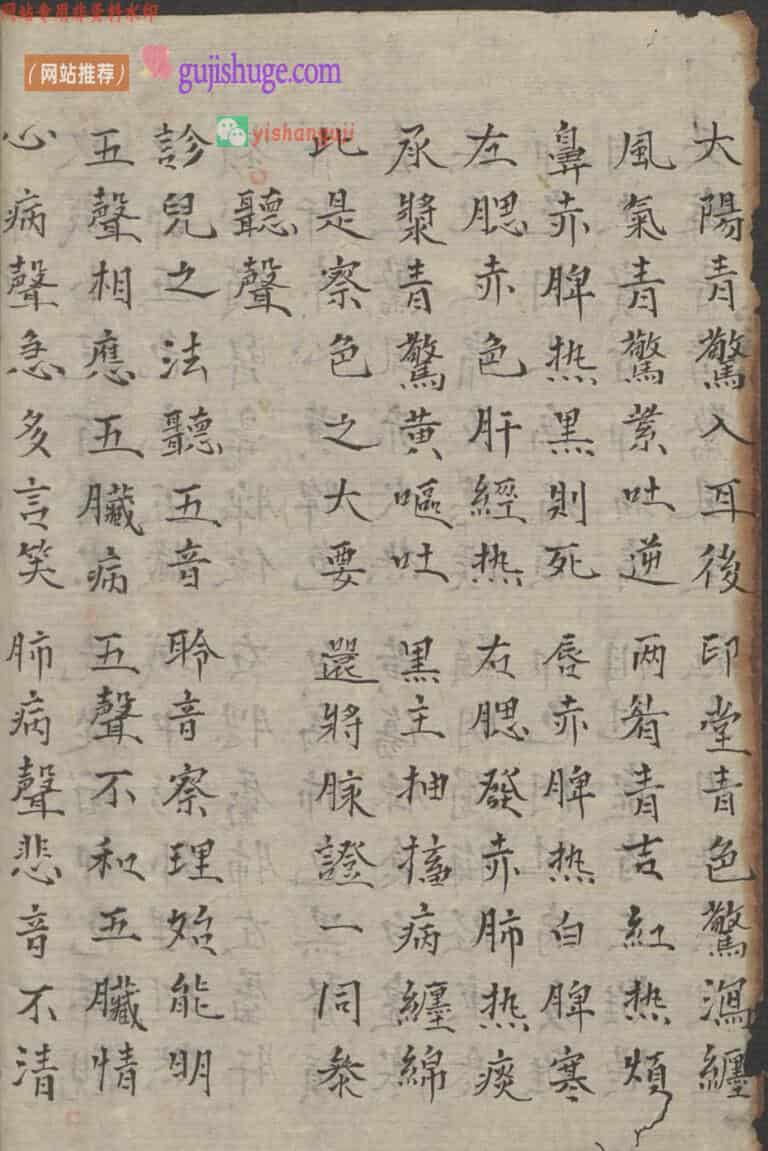 网站专用非资料水印
（网站推荐）
gujishuge.com
yishanguji
大陽青驚入耳後印堂青色驚瀉纏
風氣青驚紫吐逆两眉青吉紅热煩
鼻赤脾热黑則死唇赤脾热白脾寒
左腮赤色肝經热右腮發赤肺热痰
承漿青驚黄嘔吐黑主抽搐病纏綿
此是察色之大要還將脉證一同叅
聽聲
診兒之法聽五音聆音察理始能明
五聲相應五臟病五聲不和五臟情
心病聲急多言笑肺病聲悲音不清